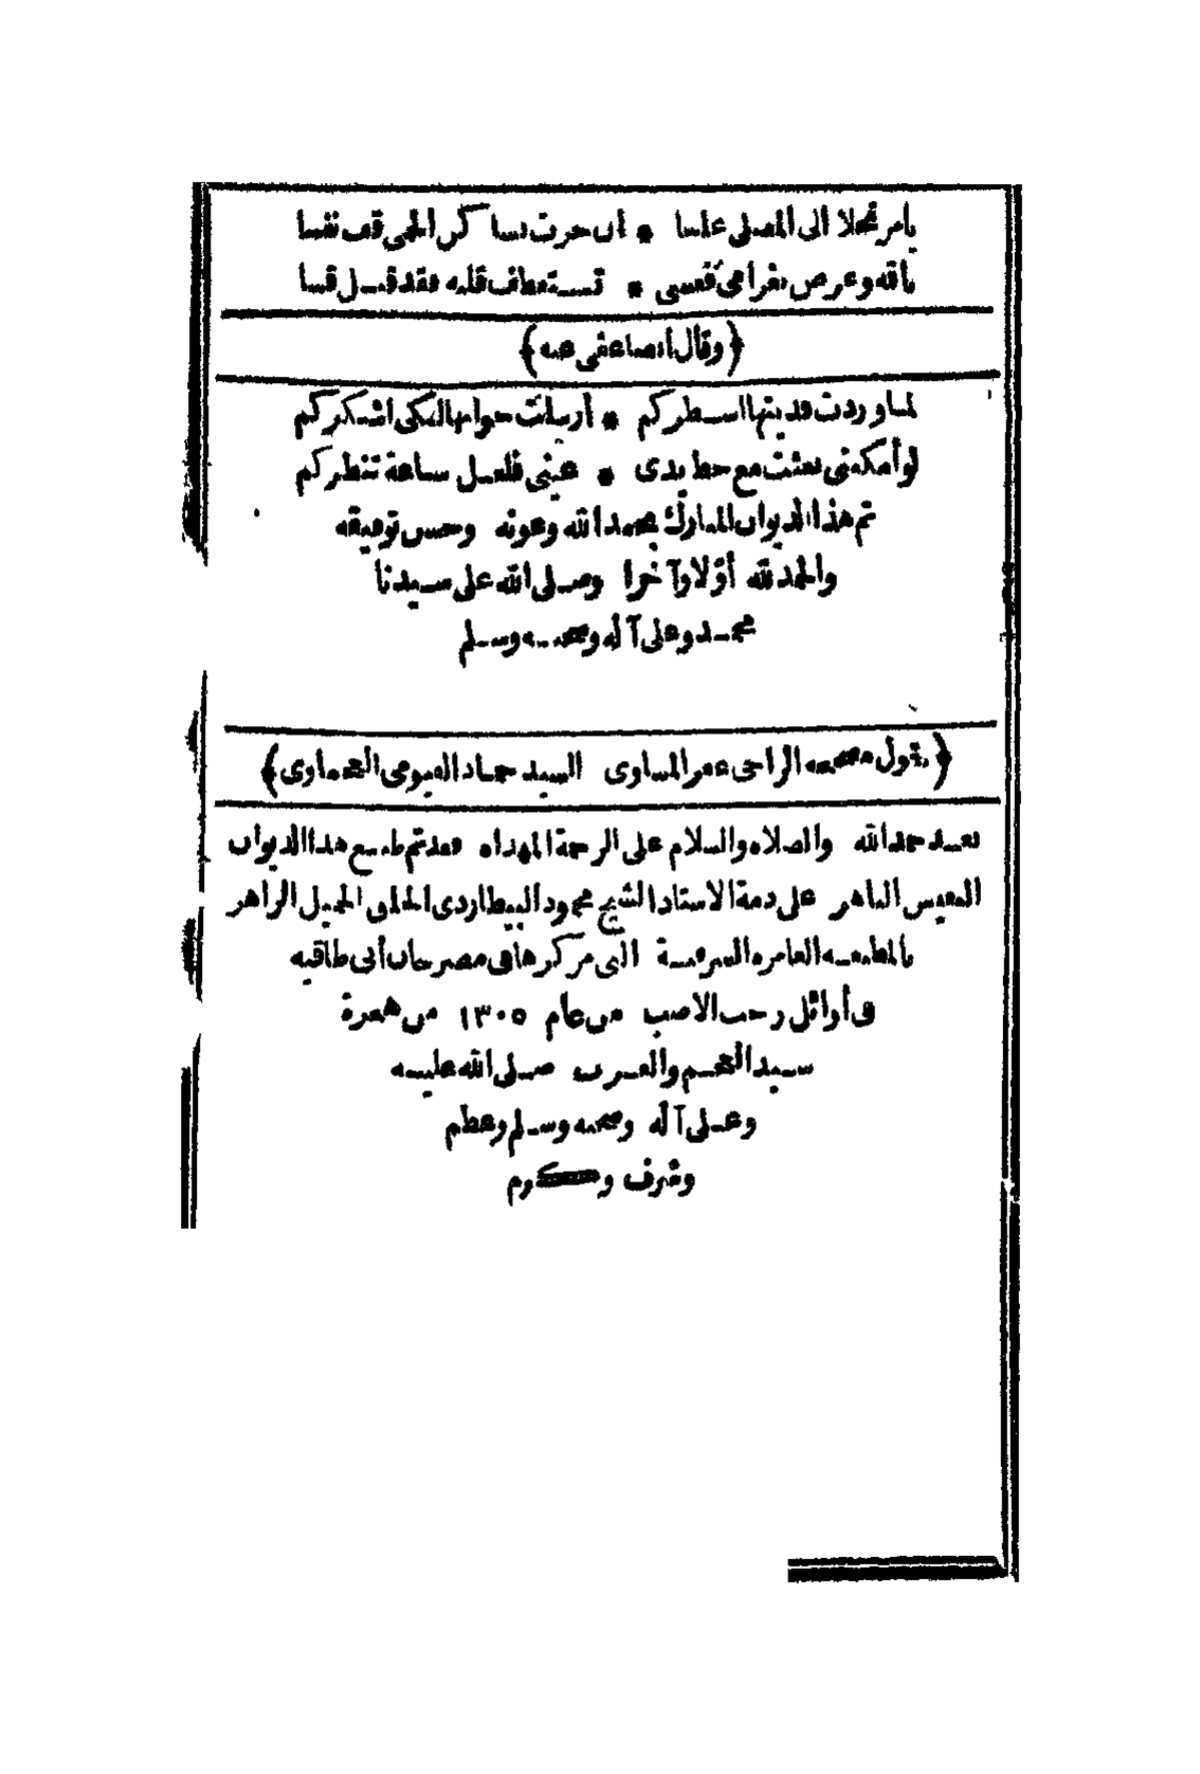 يا مرتحلا الى المصلى غلسا * ان جزت بساكن الحمى قف نفسا
بالله وعرض بغرامى فعسى * تستعطف قلبه فقد قيل قسا
﴿وقال أيضا عفى عنه﴾
لما وردت فديتها أسطركم * أرسلت جوابها لكى أشكركم
لو أمكننى بعثت مع خط يدى * عينى فلعل ساعة تنظركم
تم هذا الديوان المبارك بحمد الله وعونه وحسن توفيقه
والحمد لله أوّلا وآخرا وصلى الله على سيدنا
محمد وعلى آله وصحبه وسلم
﴿يقول مصححه الراجى عفر المساوى السيد حماد الفيومى العجماوى﴾
بعد حمد الله والصلاه والسلام على الرحمة المهداه فقد تم طبع هذا الديوان
النفيس الباهر على ذمة الاستاذ الشيخ محمود البيطار دى الحلبى الجميل الزاهر
بالمطبعه العامره الشرفية التى مركزها فى مصر بخان أبى طاقيه
فى أوائل رجب الاصب من عام ١٣٠٥ من هجرة
سيد العجم والعرب صلى الله عليه
وعلى آله وصحبه وسلم وعظم
وشرف وكرم